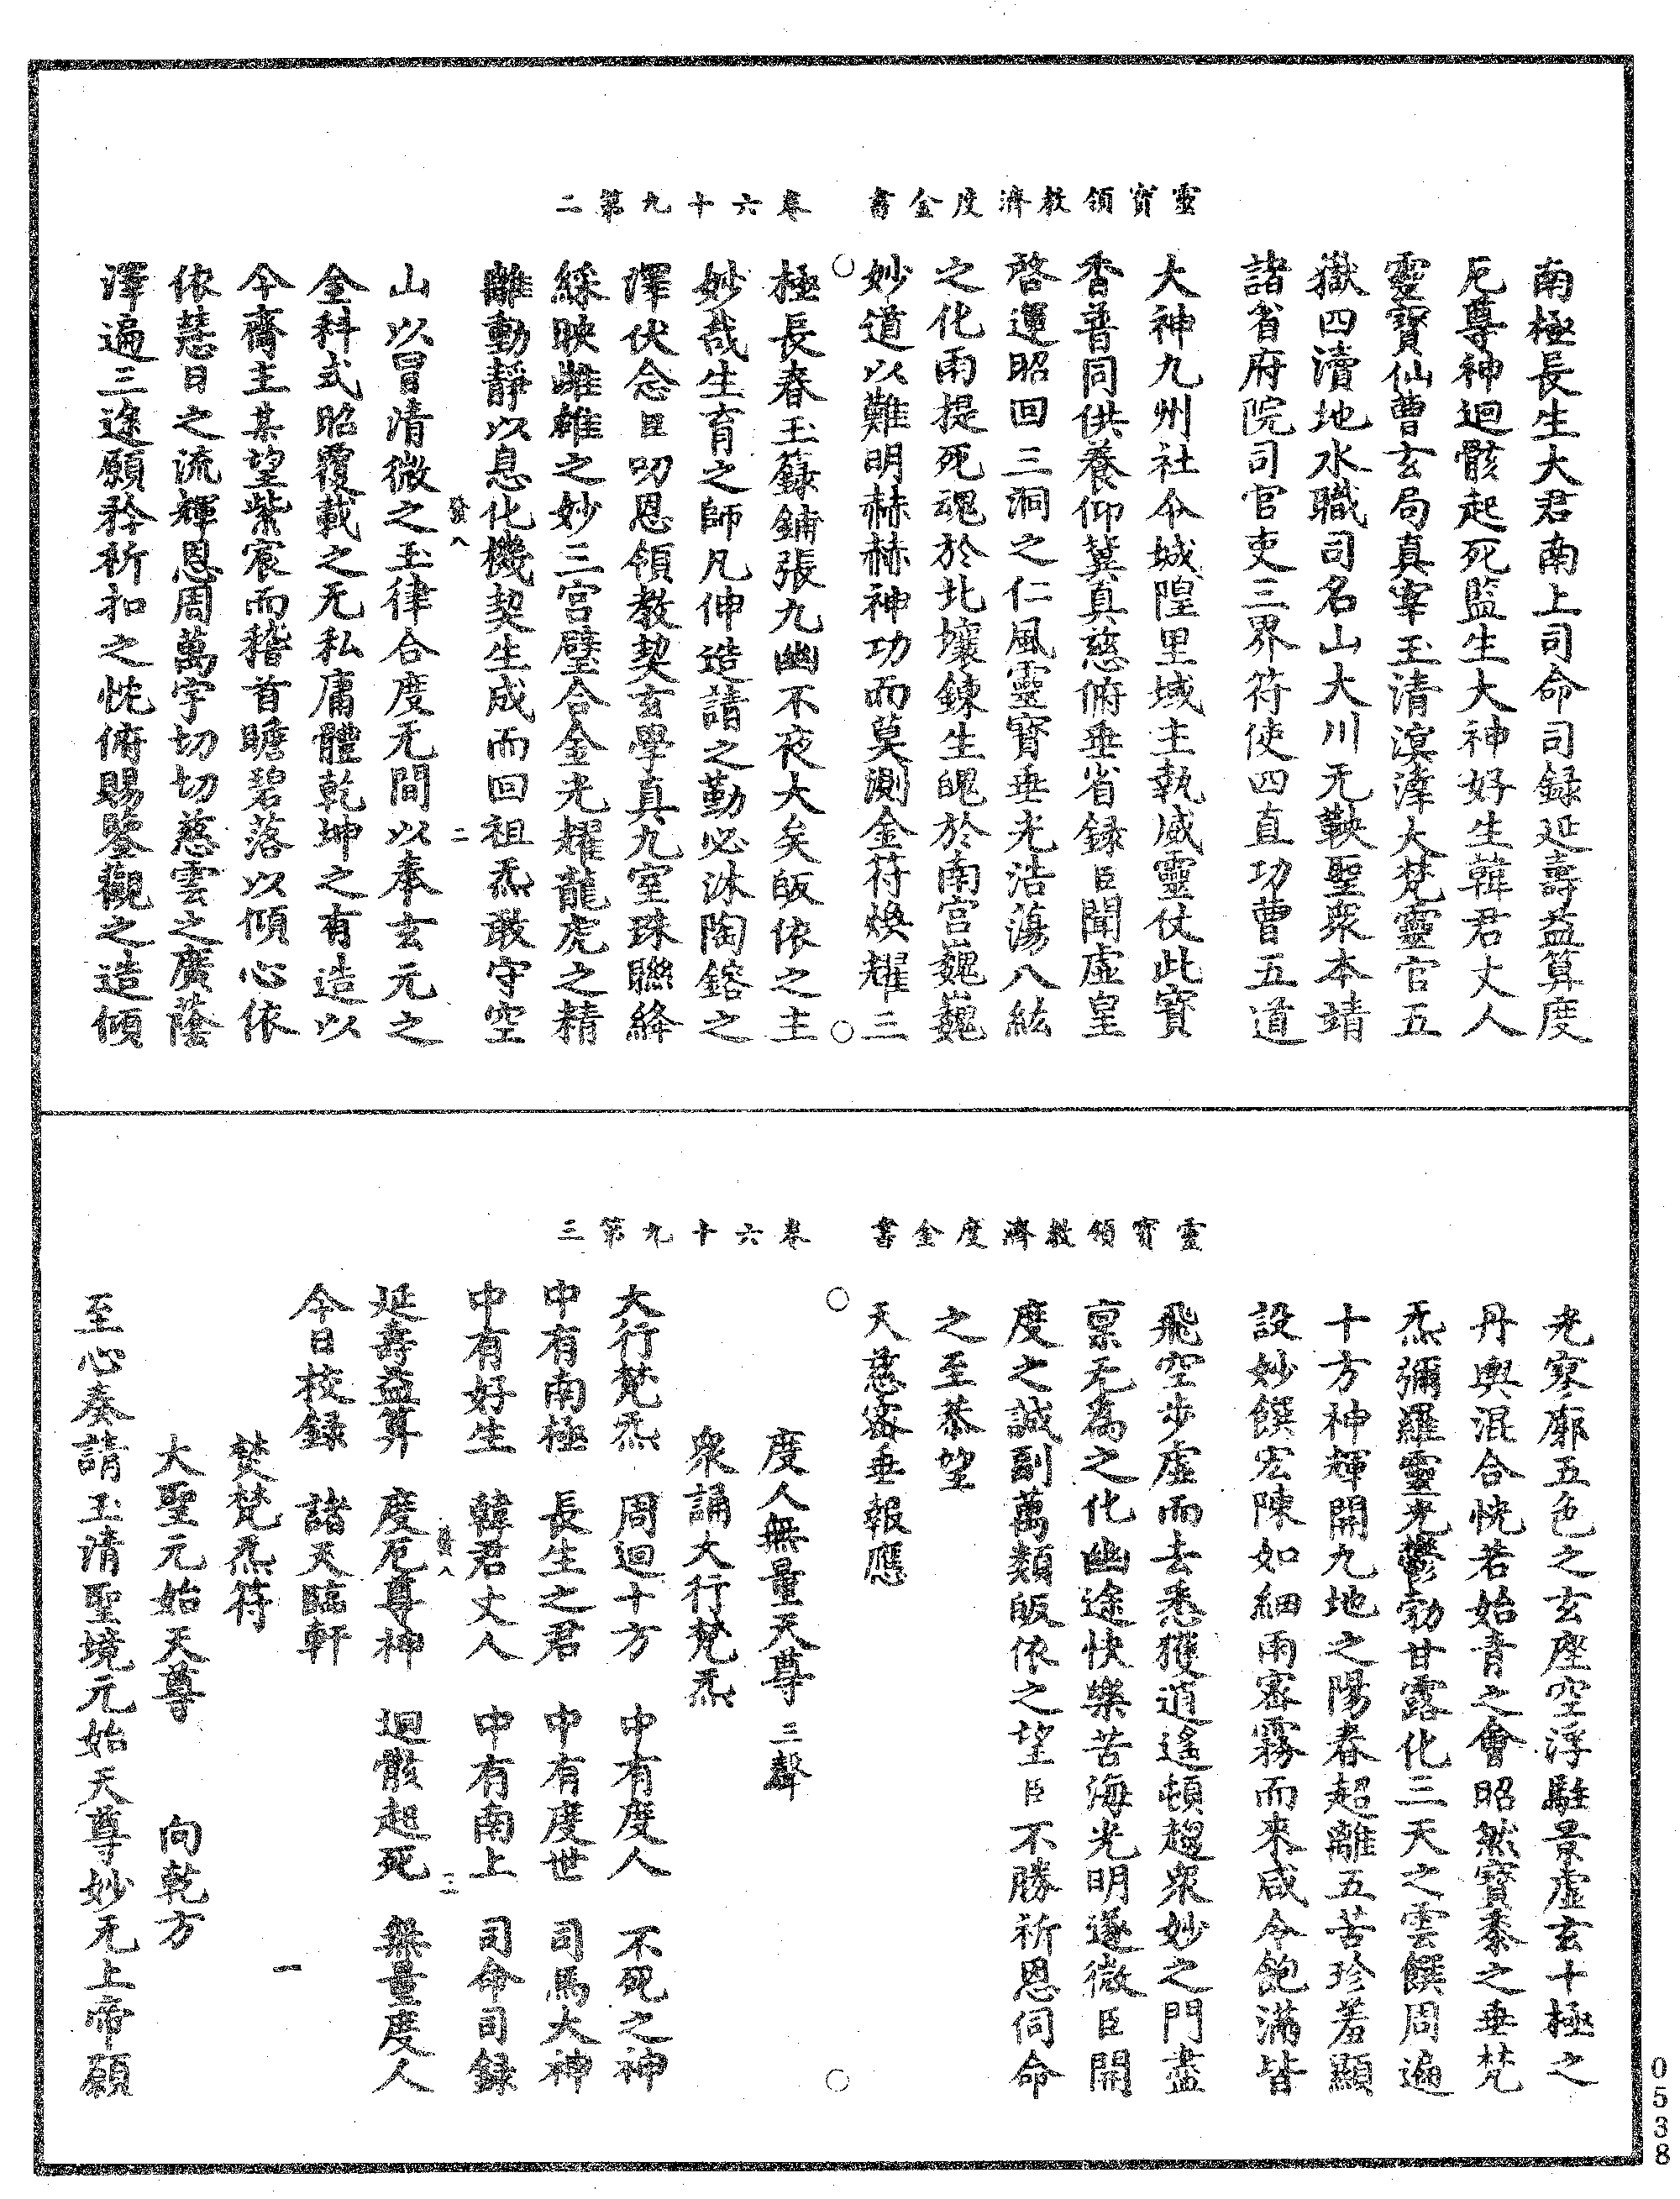 靈寶領教濟度金書　卷六十九第二
南極長生大君南上司命司録延壽益算度
厄尊神迴骸起死監生大神好生韓君丈人
靈寶仙曹玄局真宰玉清溟涬大梵靈官五
嶽四瀆地水職司名山大川无鞅聖衆本靖
諸省府院司官吏三界符使四直功曹五道
大神九州社令城隍里域主執威靈仗此寶
香普同供養仰冀真慈俯垂省録臣聞虛皇
啓運昭回三洞之仁風靈寶垂光浩蕩八紘
之化雨提死魂於北壤鍊生魄於南宫巍巍
妙道以難明赫赫神功而莫測金符煥耀三
極長春玉籙鋪張九幽不夜大矣皈依之主
妙哉生育之師凡伸造請之勤必沐陶鎔之
澤伏念臣叨恩領教契玄學真九室珠聯絳
綵映雌雄之妙三宫璧合金光耀龍虎之精
離動靜以息化機契生成而回祖炁敢守空
八　二
山以冒清微之玉律合度无間以奉玄元之
金科式昭覆載之无私庸體乾坤之有造以
今齋主某望紫宸而稽首瞻碧落以傾心依
依慧日之流輝恩周萬宇切切慈雲之廣蔭
澤遍三途願矜祈扣之忱俯賜鑒觀之造傾
靈寶領教濟度金書　卷六十九第三
光寥廓五色之玄座空浮駐景虛玄十極之
丹輿混合恍若始青之會昭然寶黍之垂梵
炁彌羅靈光鬱勃甘露化三天之雲饌周遍
十方神輝開九地之陽春超離五苦珍羞顯
設妙饌宏陳如細雨密霧而來咸令飽滿皆
飛空步虛而去悉獲逍遙頓趨衆妙之門盡
禀无爲之化幽途快樂苦海光明遂微臣開
度之誠副萬類皈依之望臣不勝祈恩伺命
之至恭望
天慈密垂報應
度人無量天尊三聲
衆誦大行梵炁
大行梵炁　周迴十方　中有度人　不死之神
中有南極　長生之君　中有度世　司馬大神
中有好生　韓君丈人　中有南上　司命司録
八　三
延壽益算　度厄尊神　迴骸起死　無量度人
今日校録　諸天臨軒
焚梵炁符　一
大聖元始天尊　向乾方
至心奏請玉清聖境元始天尊妙无上帝願
0538